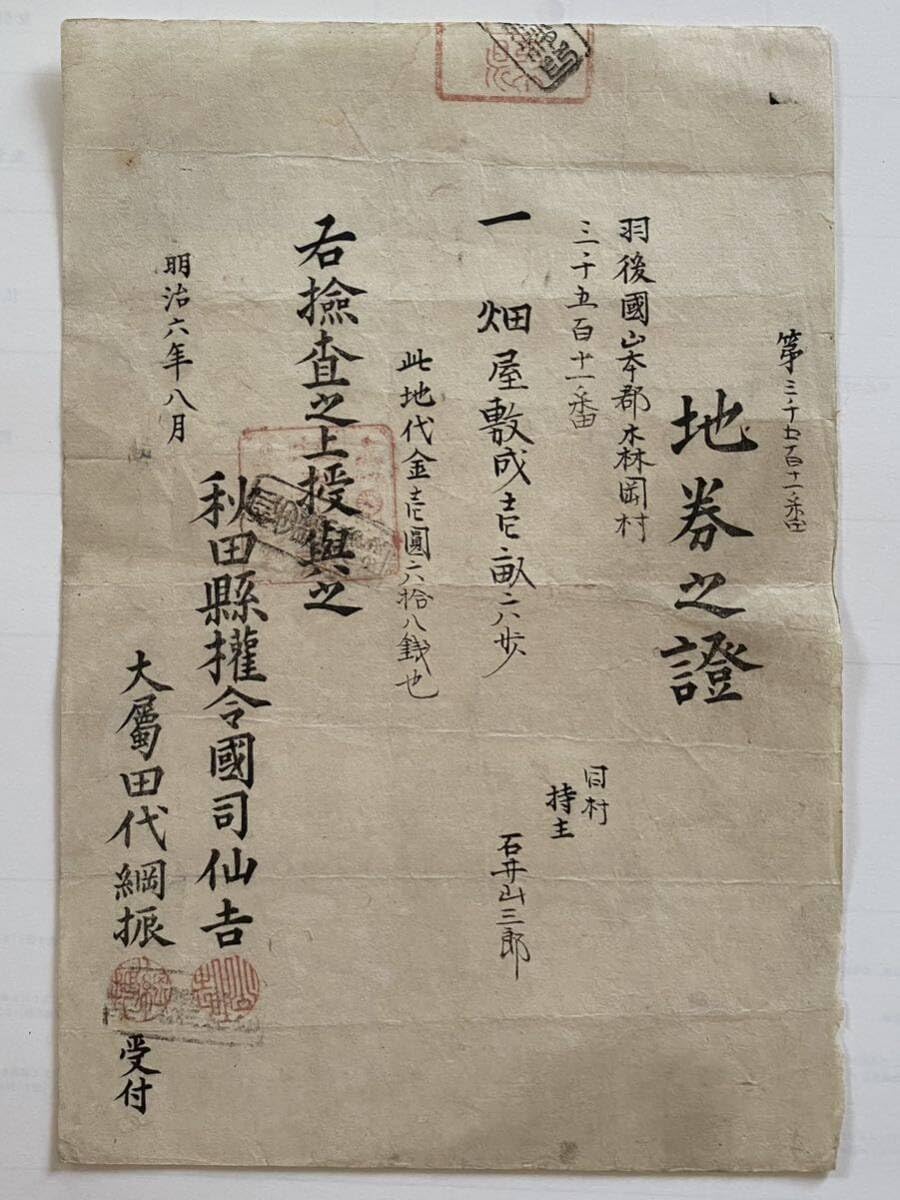 第三千五百十一番
地券之證
羽後國山本郡森岡村
三千五百十一番
一 畑屋敷成壱畝六歩
同村
持主
石井山三郎
此地代金壱圓六拾八銭也
右撿査之上授與之
明治六年八月
秋田縣權令國司仙吉
大屬田代綱振
受付